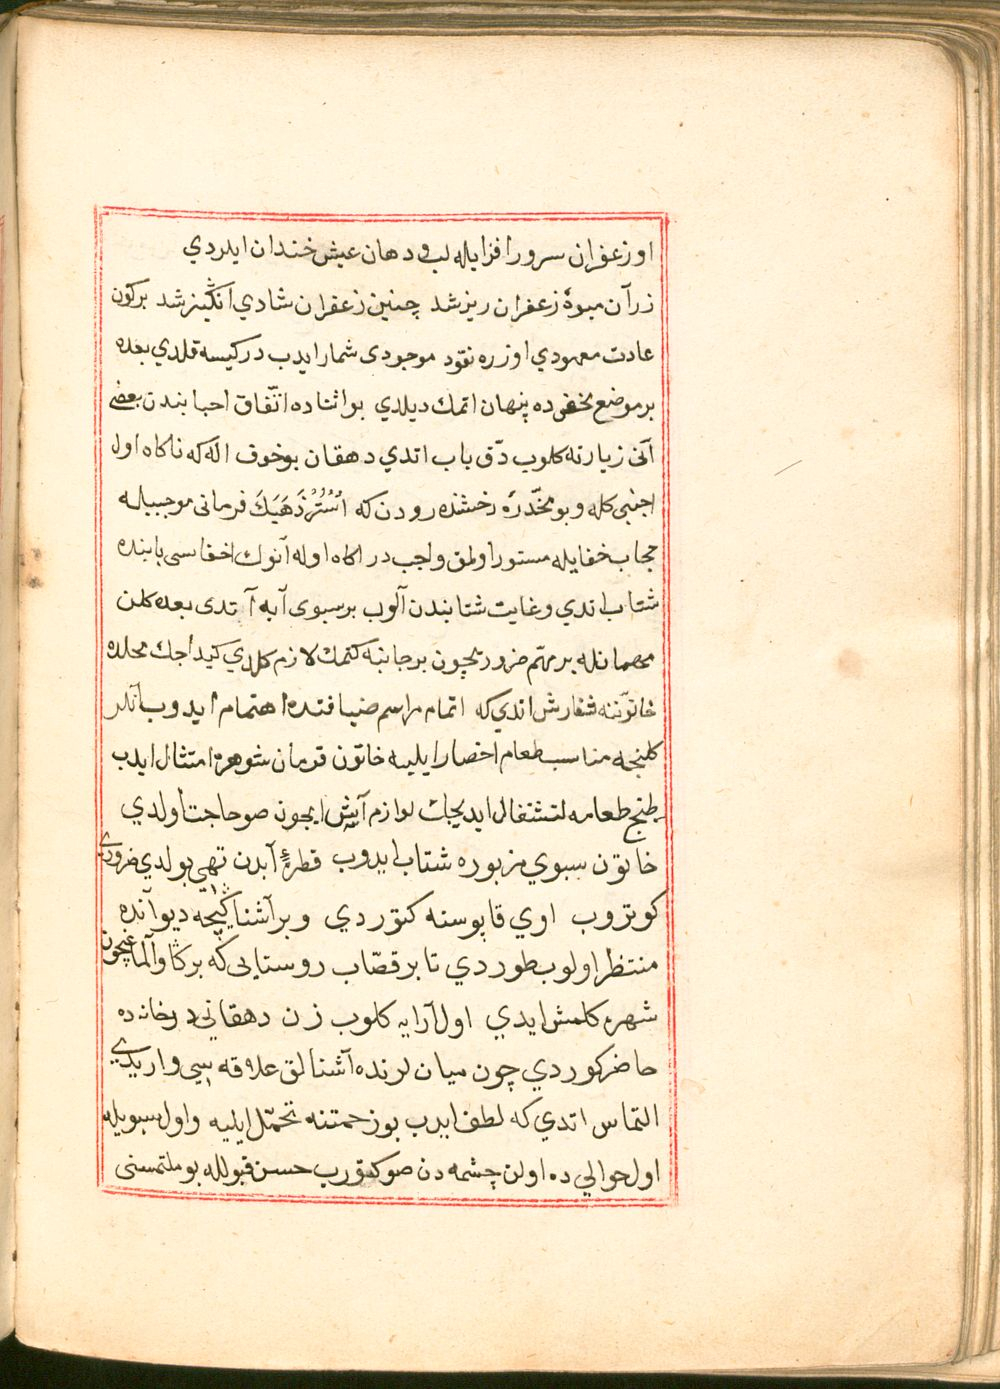 او زعفران سرور افزايله لب و دهان عيش خندان ايلردي
زر آن ميوهٔ زعفران ريز شد چنين زعفران شادي انگيز شد بر كون
عادت معهودي اوزره نقود موجودى شمار ايدب در كيسه قلدي بعده
بر موضع مخفى ده پنهان اتمك ديلدي بو اثناده اتّفاق احبابندن بعضى
آنى زيارته كلوب دّق باب اتدي دهقان بو خوف اله كه ناكاه اول
اجنبى كله و بو مخدّرهٔ رخشنده رودن كه اُسْتُرْ ذَهَبَكَ فرمانى موجبيله
حجاب خفايله مستور اولمق واجب در اكاه اوله آنوك اخفاسى بابنده
شتاب اتدي و غايت شتابندن آلوب بر سبوى آبه آتدى بعده كلن
مهمانله بر مهّم ضروريچون بر جانبه كتمك لازم كلدي كيداجك محلده
خاتوّننه سفارش اتدي كه اتمام مراسم ضيافتده اهتمام ايدوب آنلر
كلنجه مناسب طعام احضار ايليه خاتون فرمان شوهره امتثال ايدب
طبخ طعامه اشتغال ايديجك لوازم آش ايچون صو حاجت اولدي
خاتون سبوي مزبوره شتاب ايدوب قطرهٔ آبدن تهى بولدي ضروري
كوتروب اوي قاپوسنه كتوردي و بر آشنا كچه ديو آنده
منتظر اولوب طوردي تا بر قصّاب روستايى كه بر كاو آلماغچون
شهره كلمش ايدي اول آرايه كلوب زن دهقانى در خانه ده
حاضر كوردي چون ميان لرنده آشنالق علاقه سى واريدي
التماس اتدي كه لطف ايدب بو زحمتنه تحمّل ايليه و اول سبويله
اول حوالي ده اولن چشمه دن صو كتورب حسن قبولله بو ملتمسنى